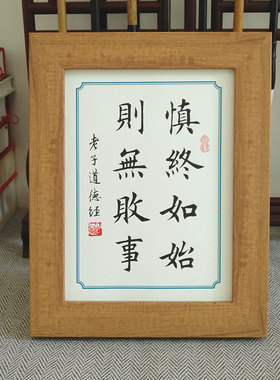 慎終如始
則無敗事
老子道德经